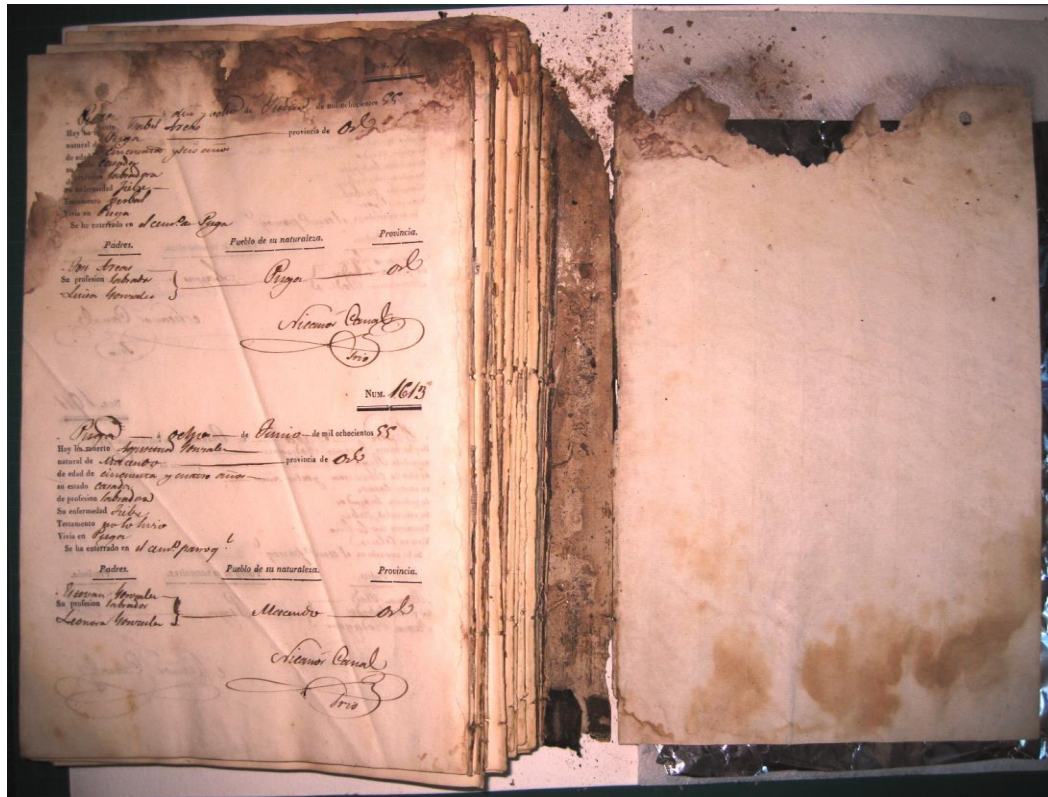 Puga á diez ocho de de mil ochocientos 55
Hoy ha muerto Isabel Areas
natural de Puga provincia de Orᵉ
de edad de cincuenta y seis años
su estado casada
de profesion labradora
su enfermedad fiebre
Testamento verbal
Vivia en Puga
Se ha enterrado en el cemᵒ de Puga
Padres. Pueblo de su naturaleza. Provincia.
Areas
Su profesion labrador Puga Orᵉ
Luisa Gonzalez
Nicanor Canal
Srio
NUM. 1613
Puga á ocho de Junio de mil ochocientos 55
Hoy ha muerto Gonzalez
natural de Macendo provincia de Orᵉ
de edad de cincuenta y cuatro años
su estado casada
de profesion labradora
Su enfermedad fiebre
Testamento no lo hizo
Vivia en Puga
Se ha enterrado en el cemᵒ parroqˡ
Padres. Pueblo de su naturaleza. Provincia.
Estevan Gonzalez
Su profesion labrador Macendo Orᵉ
Leonora Gonzalez
Nicanor Canal
Srio